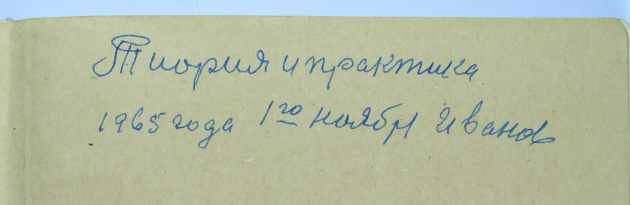 Тиория и практика
1965 года 1го ноябры Иванов